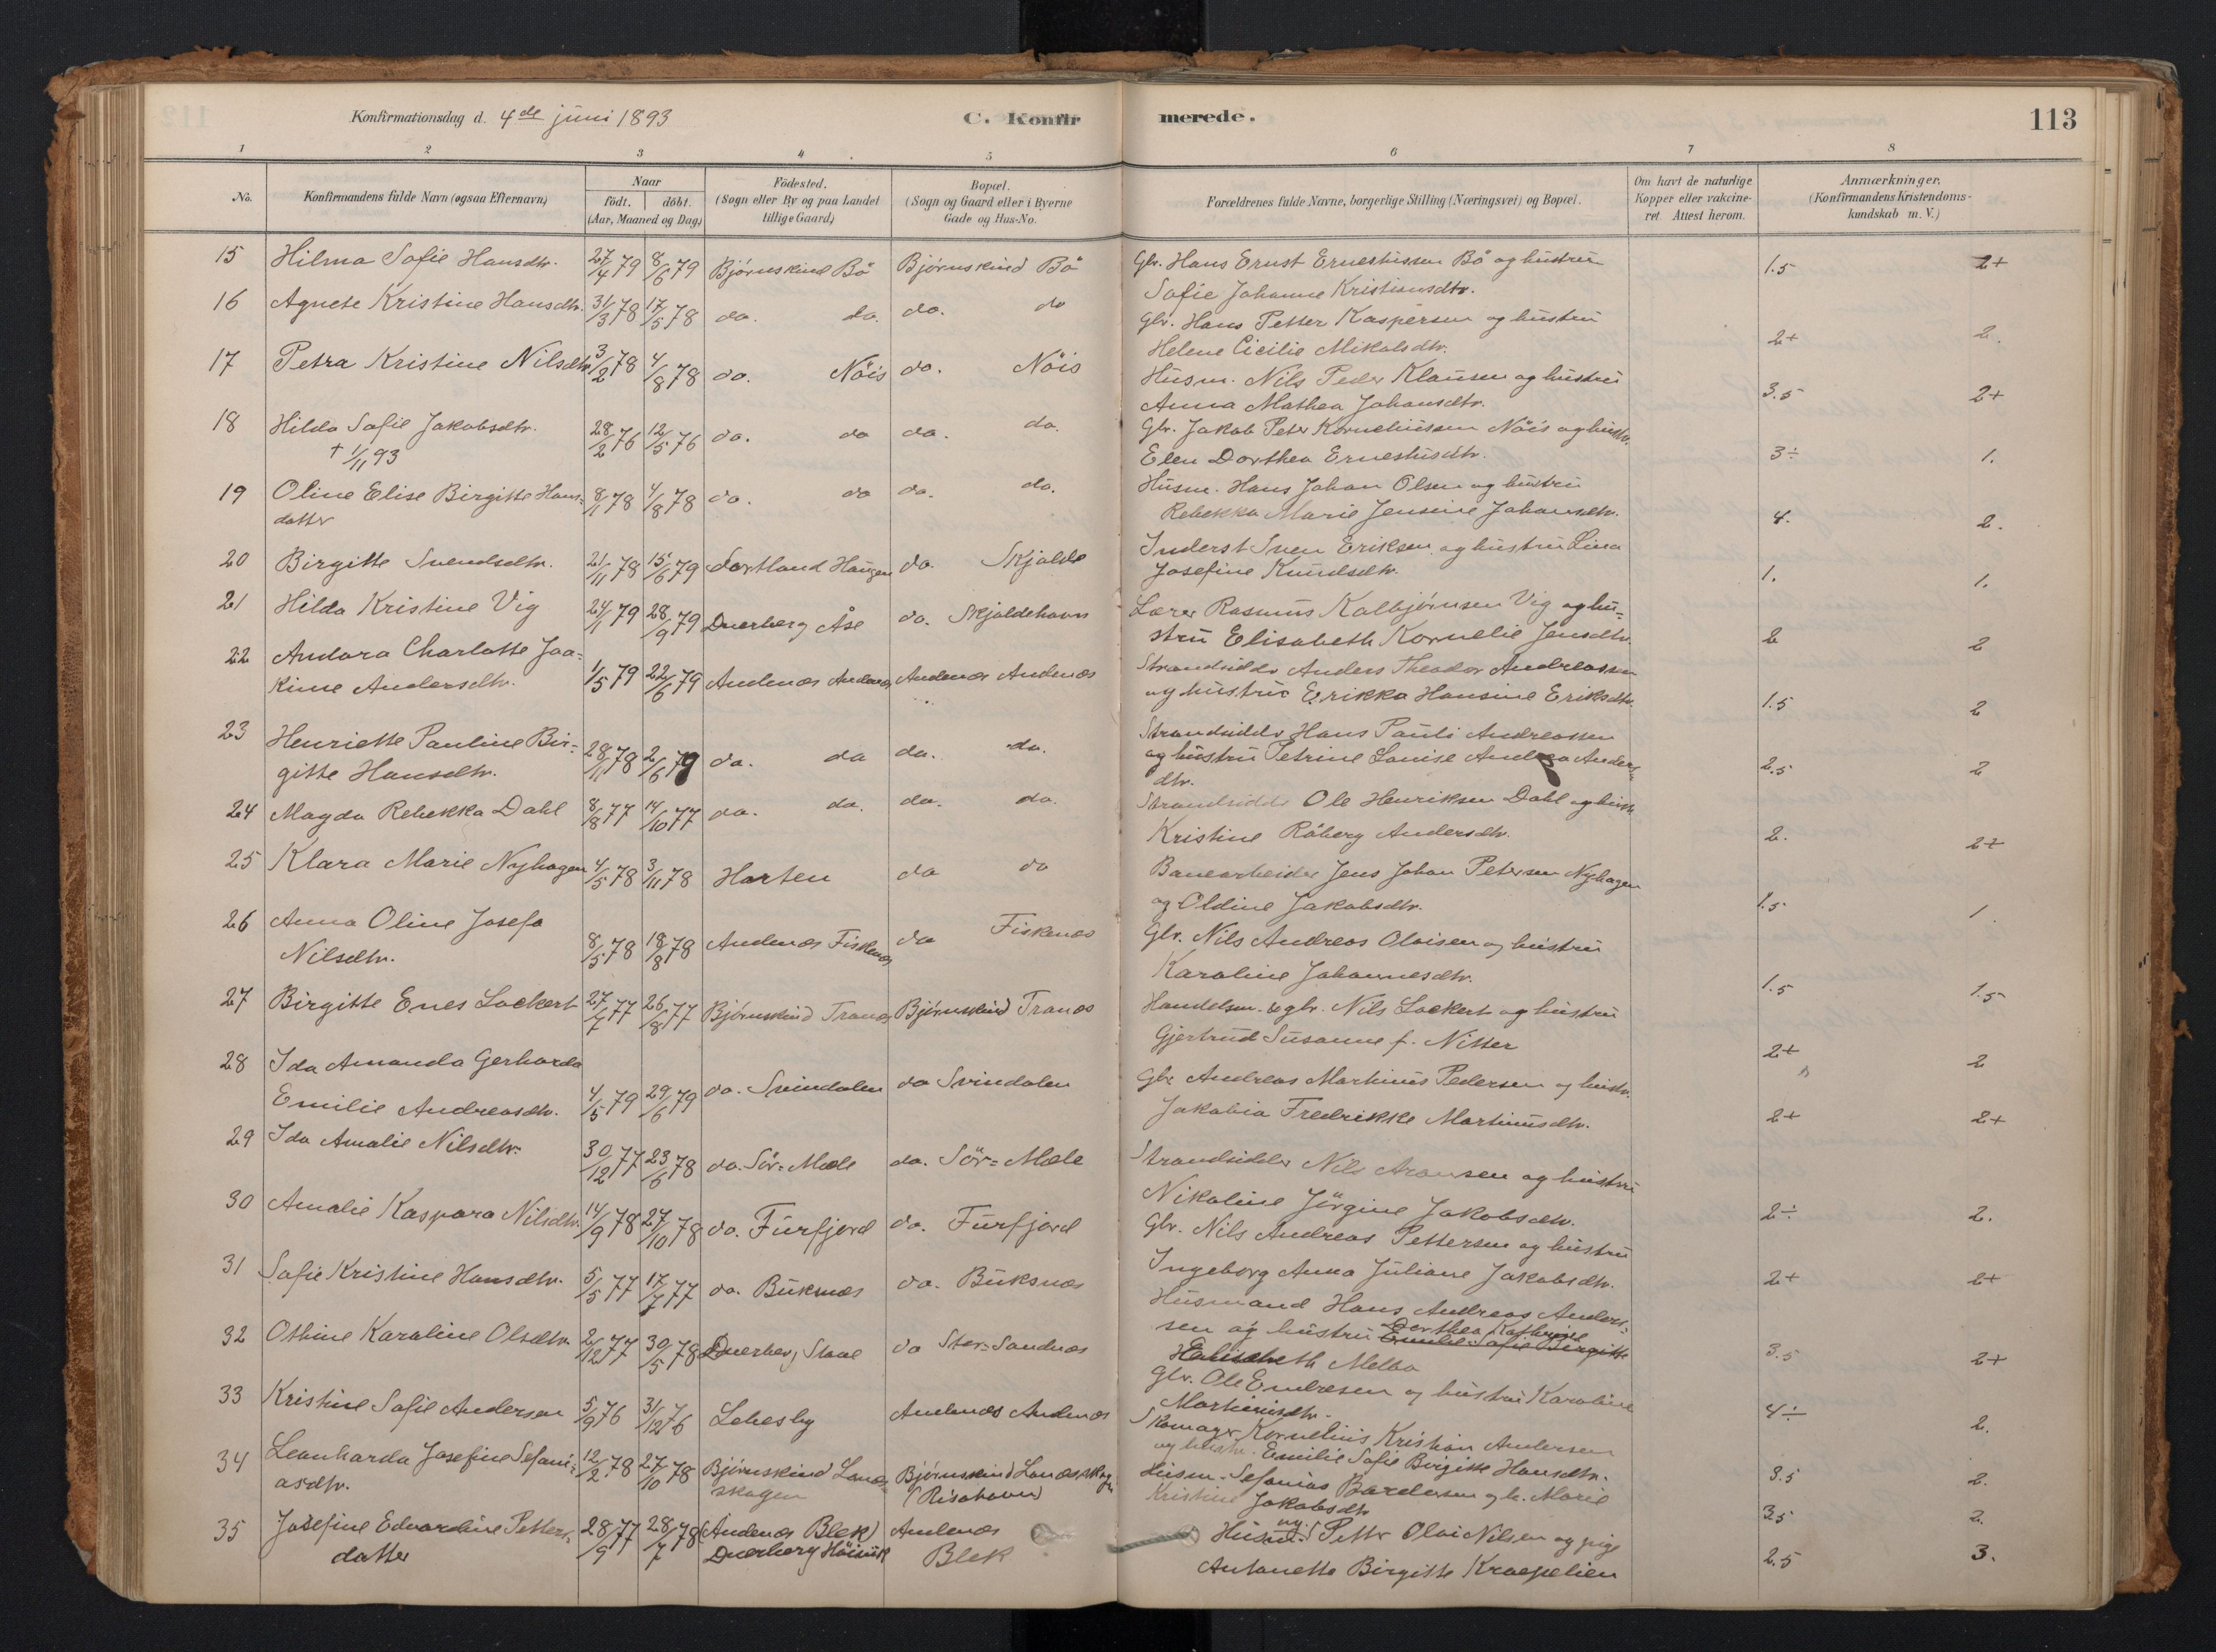 Konfirmationsdag d. 4de juni 1893 C. Konfir merede. 113
1 2 3 4 5 6 7 8
No. Konfirmandens fulde Navn (ogsaa Efternavn) Naar födt. döbt. (Aar, Maaned og Dag) Födested. (Sogn eller By og paa Landet tillige Gaard) Bopæl. (Sogn og Gaard eller i Byerne Gade og Hus-No. Forældrenes fulde Navne, borgerlige Stilling (Næringsvei) og Bopæl. Om havt de naturlige Kopper eller vakcineret. Attest herom. Anmærkninger, (Konfirmandens Kristendomskundskab m. V.)
15 Hilma Sofie Hansdtr. 27/4 79 8/6 79 Bjørnskind Bö Bjørnskind Bö Gbr. Hans Ernst Ernestussen Bö og hustru 1.5 2+
Sofie Johanne Kristiansdtr.
16 Agnete Kristine Hansdtr. 31/3 78 17/5 78 do. do. do. do Gbr. Hans Petter Kaspersen og hustru
Helene Cicilie Mikalsdtr. 2+ 2.
17 Petra Kristine Nilsdtr 3/2 78 4/8 78 do. Nöis do. Nöis Husm. Nils Peder Klausen og hustru
Anna Mathea Johansdtr. 3.5 2+
18 Hilda Sofie Jakobsdtr. 28/2 76 12/5 76 do. do do. do. Gbr. Jakob Peter Korneliussen Nöis og hustr.
† 1/11 93 Elen Dorthea Ernestusdtr. 3÷ 1.
19 Oline Elise Birgitte Hans= 8/1 78 4/8 78 do. do do. do. Husm. Hans Johan Olsen og hustru
datter Rebekka Marie Jensine Johansdtr. 4. 2.
20 Birgitte Svendsdtr. 21/11 78 15/6 79 Sortland Haugen do. Skjolde Inderst Sven Eriksen og hustru Lina
Josefine Knudsdtr. 1. 1.
21 Hilda Kristine Vig 24/1 79 28/9 79 Dverberg Åse do. Skjoldehavn Lærer Rasmus Kolbjørnsen Vig og hu=
stru Elisabeth Kornelie Jensdtr. 2 2
22 Andora Charlotte Joa= Strandsidder Anders Theodor Andreassen
kime Andersdtr. 1/5 79 22/6 79 Andenæs Andenæs Andenæs Andenæs og hustru Erikka Hansine Eriksdtr. 1.5 2
23 Henriette Pauline Bir= Strandsidder Hans Pauli Andreassen
gitte Hansdtr. 28/11 78 2/6 79 do. do do. do. og hustru Petrine Louise Andrea Anders= 2.5 2
dtr.
24 Magda Rebekka Dahl 8/8 77 14/10 77 do. do. do. do. Strandsidder Ole Henriksen Dahl og hustr
Kristine Röberg Andersdtr. 2. 2+
25 Klara Marie Nyhagen 4/5 78 3/11 78 Horten do do Banearbeider Jens Johan Petersen Nyhagen
og Oldine Jakobsdtr. 1.5 1.
26 Anna Oline Josefa Gbr. Nils Andreas Olaisen og hustru
Nilsdtr. 8/5 78 18/8 78 Andenæs Fiskenæs do Fiskenæs Karoline Johannesdtr. 1.5 1.5
27 Birgitte Enes Lockert 27/7 77 26/8 77 Bjørnskind Tranæs Bjørnskind Tranæs Handelsm. & gbr. Nils Lockert og hustru
Gjertrud Susanne f. Nitter 2+ 2
28 Ida Amanda Gerharda
Emilie Andreasdtr. 4/5 79 29/6 79 do. Svindalen do Svindalen Gbr Andreas Martinus Pedersen og hustr.
Jakobia Fredrikke Martinusdtr. 2+ 2+
29 Ida Amalie Nilsdtr. 30/12 77 23/6 78 do. Sör=Mæle do. Sör=Mæle Strandsidder Nils Aronsen og hustru
Nikoline Jörgine Jakobsdtr. 2÷ 2.
30 Amalie Kaspara Nilsdtr. 14/9 78 27/10 78 do. Furfjord do. Furfjord Gbr. Nils Andreas Pettersen og hustru
Ingeborg Anna Juliane Jakobsdtr. 2+ 2+
31 Sofie Kristine Hansdtr. 5/5 77 17/7 77 do. Buksnæs do. Buksnæs Husmand Hans Andreas Anders=
sen og hustru Dorthea Kathrine Emilie Sofie Birgitte
Melba 3.5 2+
32 Othine Karoline Olsdtr. 2/12 77 30/5 78 Dverberg Stave do Stor=Sandnæs Gbr. Ole Endresen og hustru Karoline
Martinusdtr. 4÷ 2.
33 Kristine Sofie Andersen 5/9 76 31/12 76 Lebesby Andenæs Andenæs Skomager Kornelius Kristian Andersen
og hustr. Emilie Sofie Birgitte Hansdtr. 3.5 2.
34 Leonharda Josefine Sefani= 12/2 78 27/10 78 Bjørnskind Lanæs= Bjørnskind Lanæsskogen Husm. Sefanias Bardersen og h. Marie
asdtr. skogen (Risøhavn) Kristine Jakobsdtr 3.5 2.
35 Josefine Edvardine Petters= 28/9 77 28/7 78 (Andenæs Blek) Andenæs ug. Petter Olai Nilsen og pige
datter Dverberg Blek Antonette Birgitte Kraepelien 2.5 3.